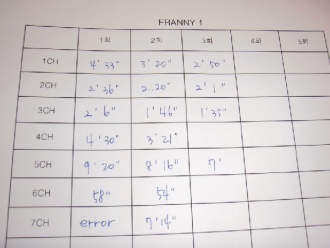 FRANNY 1
1회 2회 3회 4회 5회
1CH 4'33" 3'20" 2'50"
2CH 2'36" 2.20" 2'1"
3CH 2'6" 1'46" 1'35"
4CH 4'30" 3'21"
5CH 9'20" 8'16" 7'
6CH 58" 54"
7CH error 7'14"